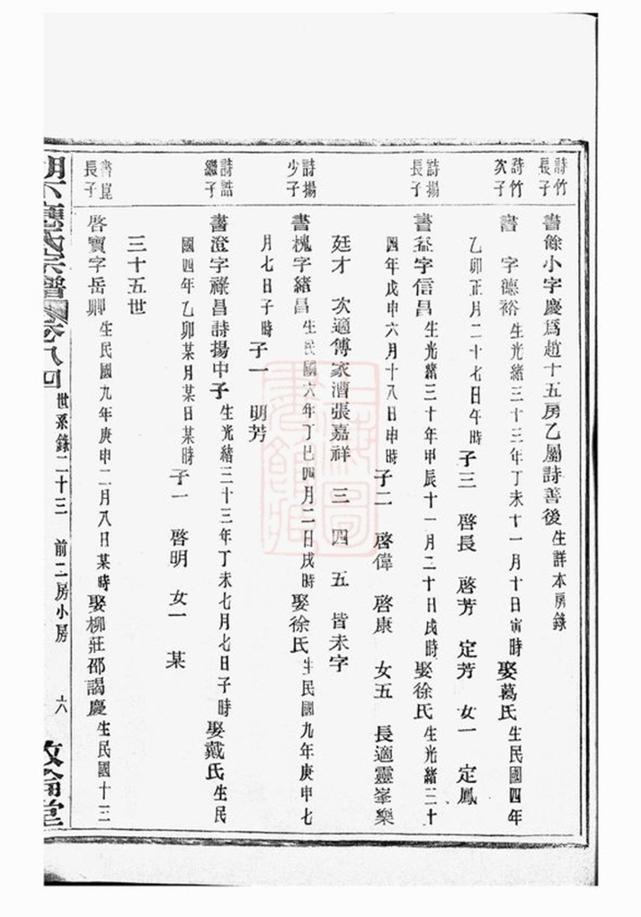 詩竹長子
書餘小字慶爲趙十五房乙屬詩善後生詳本房錄
詩竹次子
書 字德裕生光緒三十三年丁未十一月十日寅時娶葛氏生民國四年
乙卯正月二十七日午時子三 啓長 啓芳 定芳 女一 定鳳
詩揚長子
書 字信昌生光緒三十年甲辰十一月二十日戌時娶徐氏生光緒三十
四年戊申六月十八日申時子二 啓偉 啓康 女五 長適靈峯樂
廷才 次適傅家漕張嘉祥 三 四 五 皆未字
詩揚少子
書槐字緒昌生民國六年丁巳四月二日戌時娶徐氏生民國九年庚申七
月七日子時子一 明芳
詩誥繼子
書澄字祿昌詩揚中子生光緒三十三年丁未七月七日子時娶戴氏生民
國四年乙卯某月某日某時子一 啓明 女一 某
三十五世
書崑長子
啓寶字岳卿生民國九年庚申二月八日某時娶柳莊邵謁慶生民國十三
氏宗譜 卷八四 世系錄二十三 前二房小房 六 敦倫堂